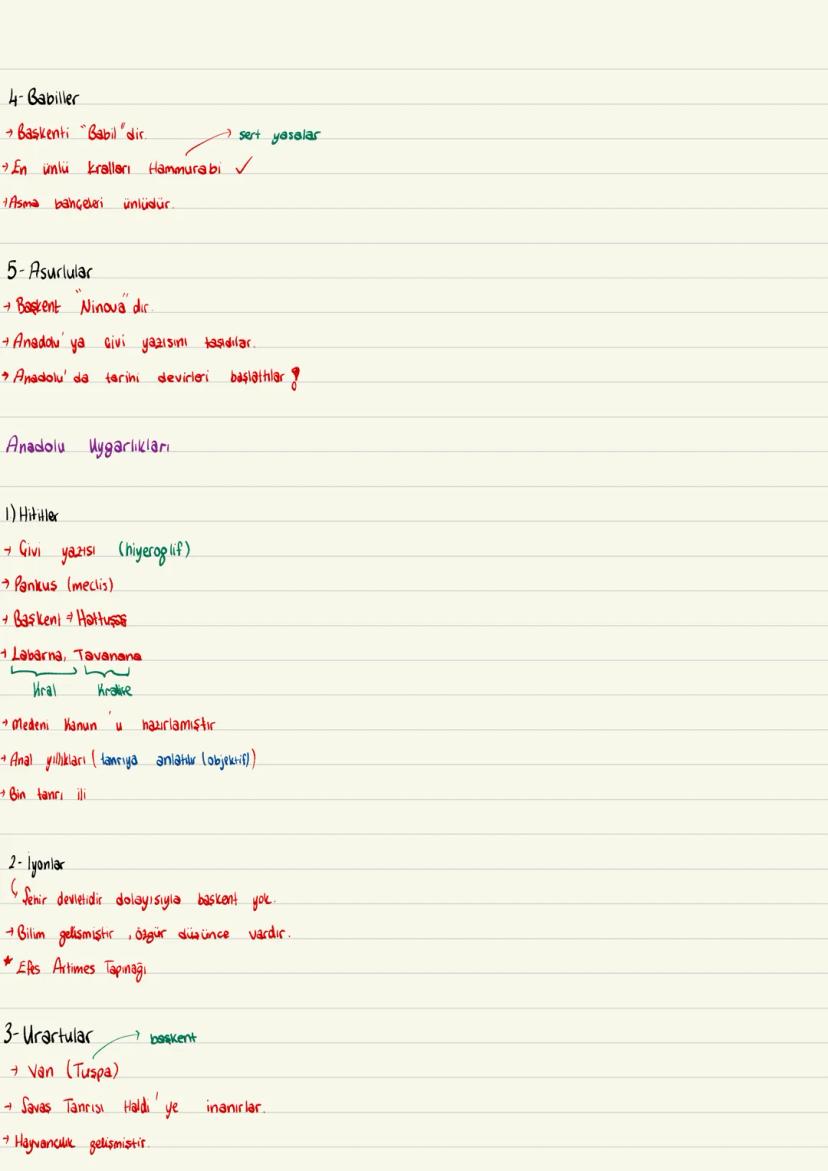 4- Babiller
→ Başkenti "Babil" dir. → sert yasalar
→ En ünlü kralları Hammurabi ✓
→ Asma bahçeleri ünlüdür.
5- Asurlular
→ Başkent "Ninova" dır.
→ Anadolu'ya çivi yazısını taşıdılar.
→ Anadolu'da tarihi devirleri başlattılar !
Anadolu Uygarlıkları
1) Hititler
→ Çivi yazısı (hiyeroglif)
→ Pankus (meclis)
→ Başkent → Hattuşa
→ Labarna, Tavanana
Kral Kraliçe
→ Medeni Kanun'u hazırlamıştır
→ Anal yıllıkları (tanrıya anlatılır (objektif))
→ Bin tanrı ili
2- İyonlar
Şehir devletidir dolayısıyla başkent yok.
→ Bilim gelişmiştir, özgür düşünce vardır.
* Efes Artimes Tapınağı
3- Urartular → başkent
→ Van (Tuşpa)
→ Savaş Tanrısı Haldi'ye inanırlar.
→ Hayvancılık gelişmiştir.